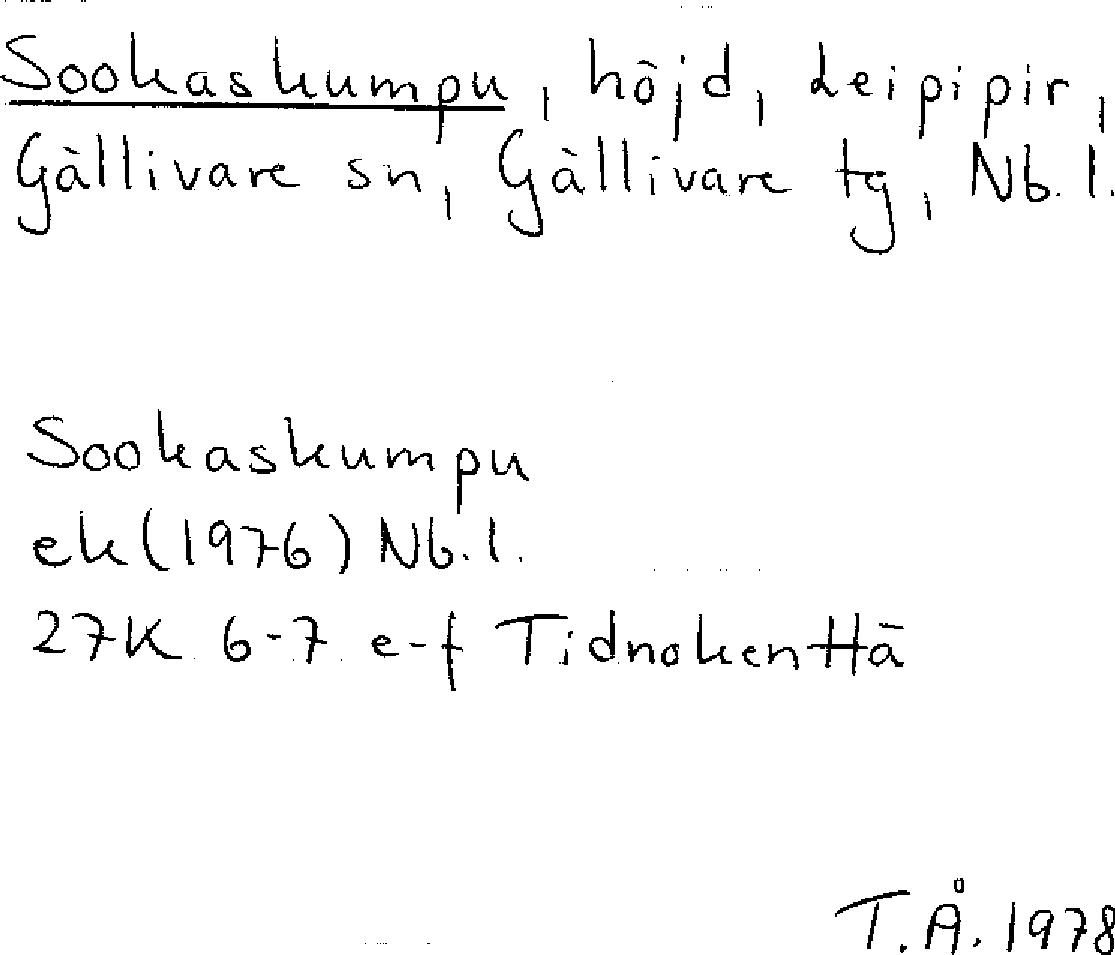 Sookaskumpu, höjd, Leipipir,
Gällivare sn, Gällivare tg, Nb. l.
Sookaskumpu
ek (1976) Nb. l.
27K 6-7 e-f Tidnokenttä
T.Å. 1978